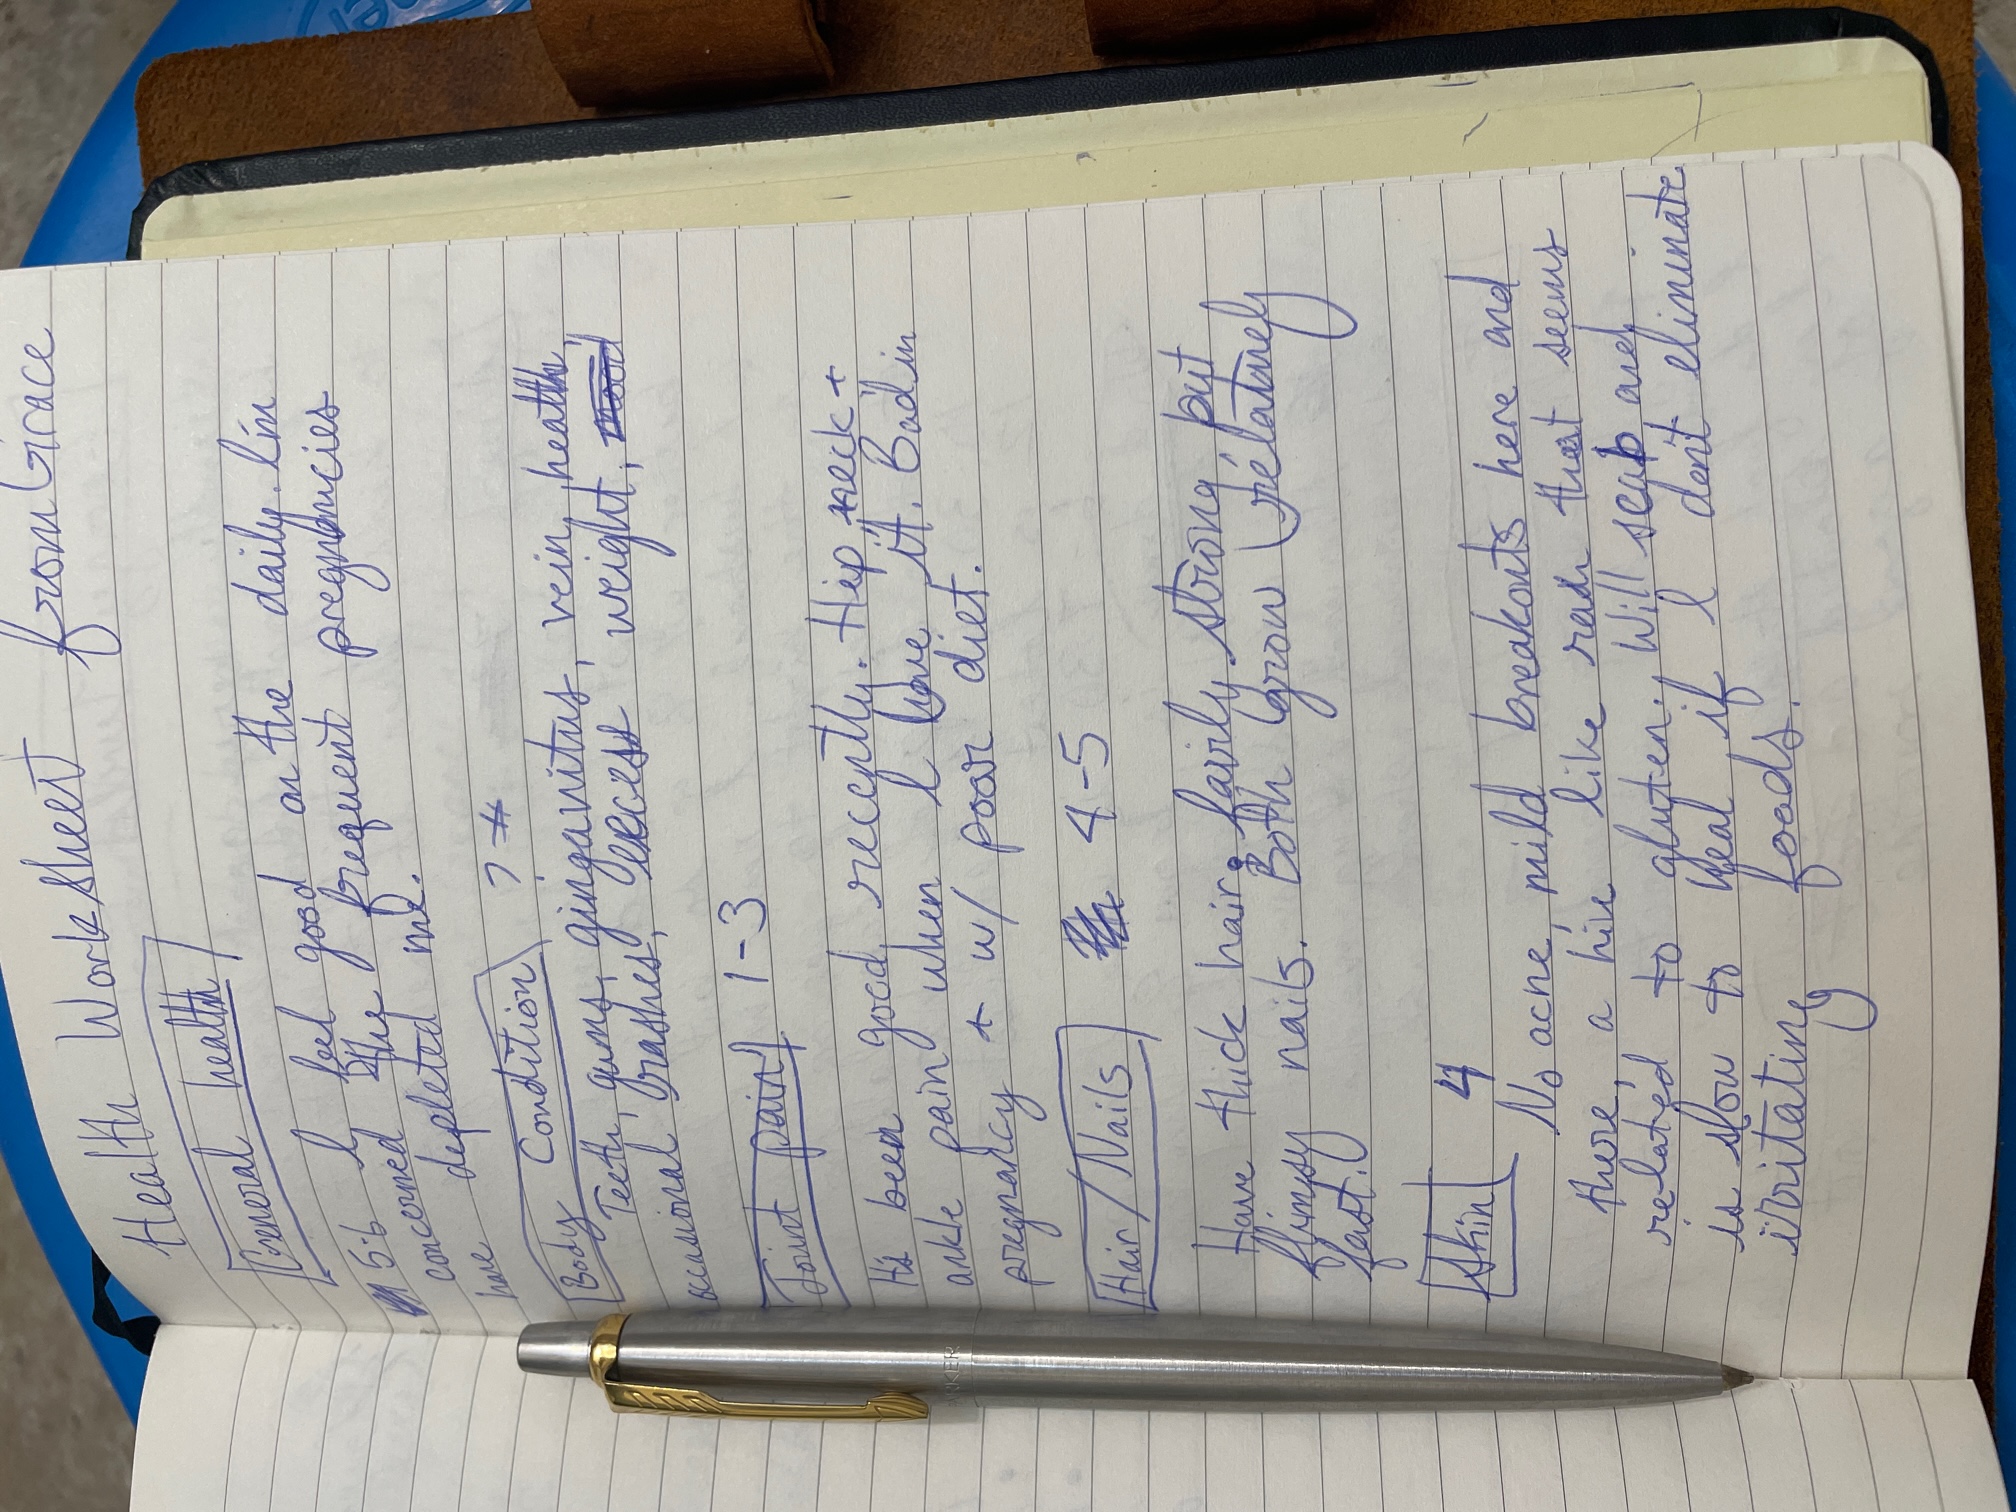 Health Worksheet from Grace
General health
5-6 I feel good on the daily. I'm
concerned the frequent pregnancies
have depleted me.
Body Condition ? #
Teeth, gums, gingavitus, vein, health,
occasional rashes, excess weight, mood
Joint pain 1-3
It's been good, recently. Hip, neck +
ankle pain when I have it. Bad in
pregnancy + w/ poor diet.
Hair/Nails 4-5
Have thick hair. fairly strong, but
flimsy nails. Both grow relatively
fast.
Skin 4
No acne, mild breakouts here and
there, a hive like rash that seems
related to gluten. Will scab and
is slow to heal if I don't eliminate
irritating foods.
PARKER